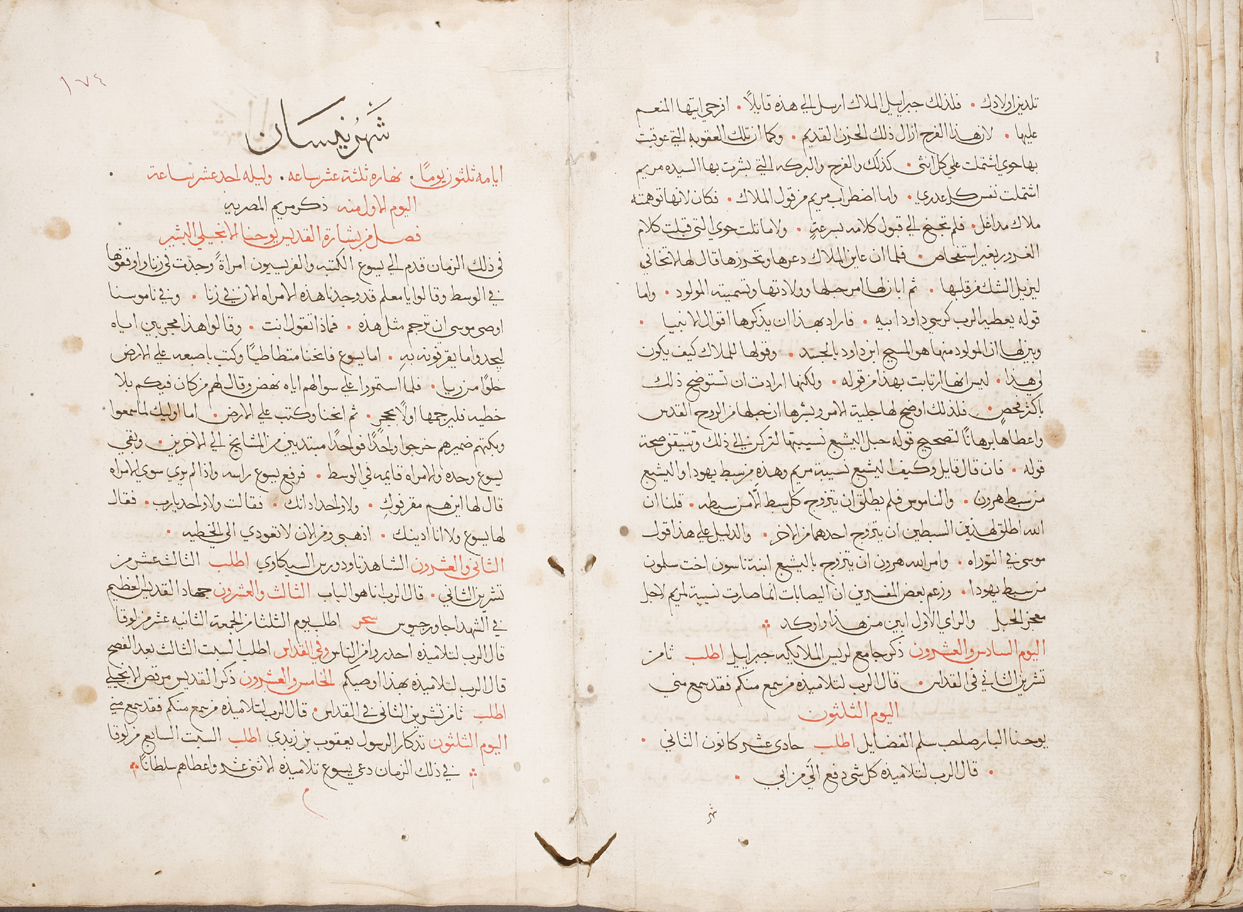 تلدين اولادك • فلذلك جبراييل الملاك ارسل الي هذه قايلًا • افرحي ايتها المنعم
عليها • لان هذا الفرح ازال ذلك الحزن القديم • وكما ان تلك العقوبه التي عوقبت
بها حوي اشتملت علي كل انثي • كذلك والفرح والبركه التي بشرت بها السيده مريم
اشتملت نفس كل عدري • واما اضطراب مريم من قول الملاك • فكان لانها توهمته
ملاك مداغل • فلم تجنح الي قبول كلامه بسرعةٍ • ولا ماثلت حوي التي قبلت كلام
الغرور بغير استفحاص • فلما ان عاين الملاك دعرها وتحرزها قال لها لا تخافي
ليزيل الشك من قلبها • ثم ابان لها امر حبلها وولادتها وتسميته المولود • واما
قوله يعطيه الرب كرسي داود ابيه • فاراد بهذا ان يذكرها اقوال الانبيا •
ويبين لها ان المولود منها هو المسيح ابن داود بالجسد • وقولها للملاك كيف يكون
لي هذا • ليس انها ارتابت بهذا من قوله • ولكنها ارادت ان تستوضح ذلك
باكثر فحص • فلذلك اوضح لها جلية الامر وبشرها ان حبلها من الروح القدس
واعطاها برهانًا لتصحيح قوله حبل اليشبع نسيبتها لتركن الي ذلك وتتيقن صحة
قوله • فان قال قايل وكيف اليشبع نسيبة مريم وهذه من سبط يهودا واليشبع
من سبط هرون • والناموس فلم يطلق ان يتزوج كل سبط الّا من سبطه • قلنا ان
الله اطلق لهذين السبطين ان يتزوج احدهما من الاخر • والدليل علي هذا قول
موسي في التوراه • وامر الله هرون ان يتزوج باليشبع ابنة ناسون اخت سلون
من سبط يهودا • وزعم بعض المفسرين ان اليصابات انما صارت نسيبة لمريم لاجل
معجز الحبل والراي الاول ابين من هذا واوكد
اليوم السادس والعشرون ذكر جامع لريس الملايكه جبراييل اطلب ثامن
تشرين الثاني في القداس • قال الرب لتلاميذه من سمع منكم فقد سمع مني
اليوم الثلثون
يوحنا البار صاحب سلم الفضايل اطلب حادي عشر كانون الثاني •
• قال الرب لتلاميذه كل شي دفع اليّ من ابي •
شهر
١٧٤
شهر نيسان
ايامه ثلثون يومًا • نهاره ثلثة عشر ساعه • وليله احد عشر ساعة •
اليوم الاول منه ذكر مريم المصريه
فصل من بشارة القديس يوحنا الانجيلي البشير
في ذلك الزمان قدم الي يسوع الكتبه والفريسيون امراةً وجدت في زنا واوقفوها
في الوسط وقالوا يا معلم قد وجدنا هذه الامراه الان في زنا • وفي ناموسنا
اوصي موسي ان ترجم مثل هذه • فماذا تقول انت • وقالوا هذا مجربين اياه
ليجدوا ما يقرفونه بهِ • اما يسوع فانحنا متطاطيًا وكتب باصبعه علي الارض
خلوًا من ريا • فلما استمروا علي سوالهم اياه نهض وقال لهم من كان فيكم بلا
خطيه فليرجمها اولًا بحجرٍ • ثم انحنا وكتب علي الارض • اما اوليك لما سمعوا
وبكتهم ضميرهم خرجوا واحدًا فواحدًا مبتديين من المشايخ الي الاخرين • وبقي
يسوع وحده والامراه قايمه في الوسط • فرفع يسوع راسه واذا لم يري سوي الامراه
قال لها اين هم مقرفوكِ • ولا واحد دانك • فقالت ولا واحد يا رب • فقال
لها يسوع ولا انا ادينك • اذهبي ومن الان لا تعودي الي الخطيه •
الثاني والعشرون الشاهد ثاودورس السيكاوي اطلب الثالث عشر من
تشرين الثاني • قال الرب انا هو الباب الثالث والعشرون جهاد القديس العظيم
في الشهدا جاورجيوس سحر اطلب يوم الثلثا من الجمعة الثانيه عشر من لوقا
قال الرب لتلاميذه احدروا من الناس وفي القداس اطلب لسبت الثالث بعد الفصح
قال الرب لتلاميذه بهذا اوصيكم الخامس والعشرون ذكر القديس مرقص الانجيلي
اطلب ثامن تشرين الثاني في القداس • قال الرب لتلاميذه من سمع منكم فقد سمع مني
اليوم الثلثون تذكار الرسول يعقوب بن زبدي اطلب السبت السابع من لوقا
في ذلك الزمان دعي يسوع تلاميذه الاثني عشر واعطاهم سلطانًا